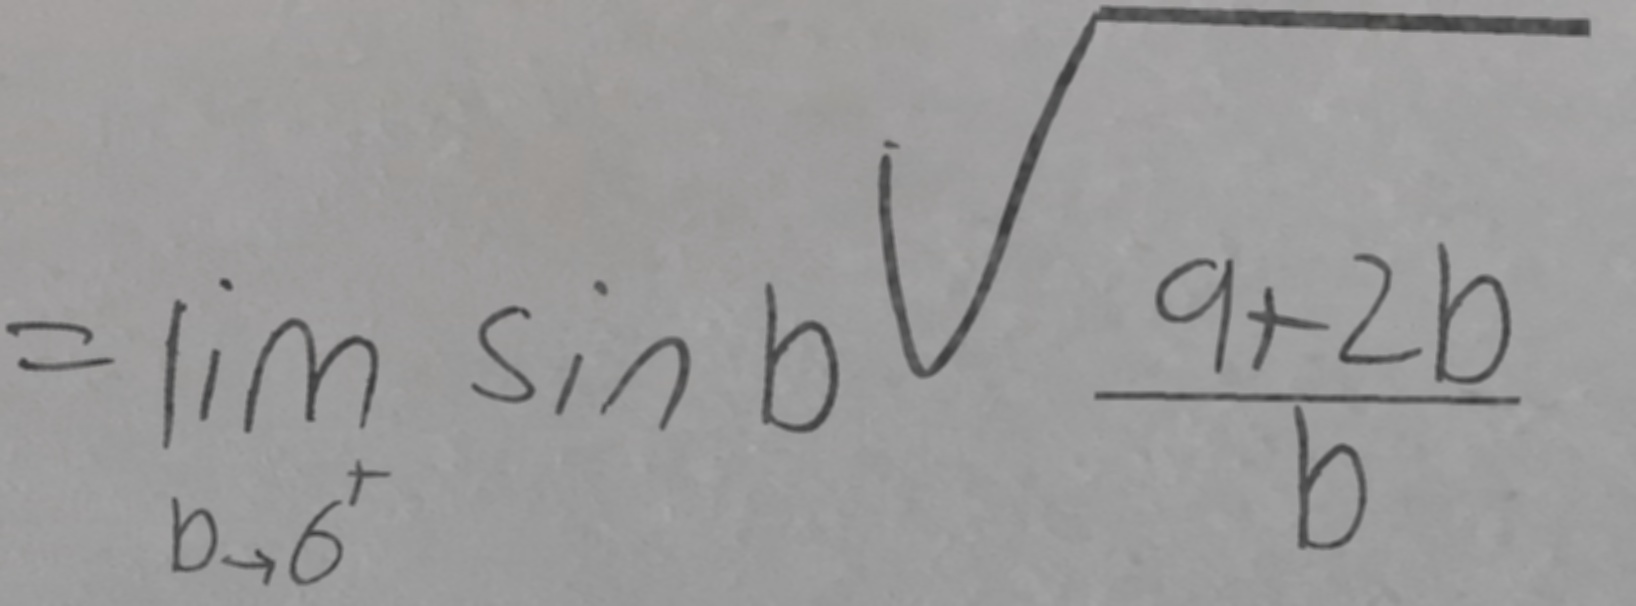 = \lim_{b \to 6^+} \sin b \sqrt{\frac{9+2b}{b}}